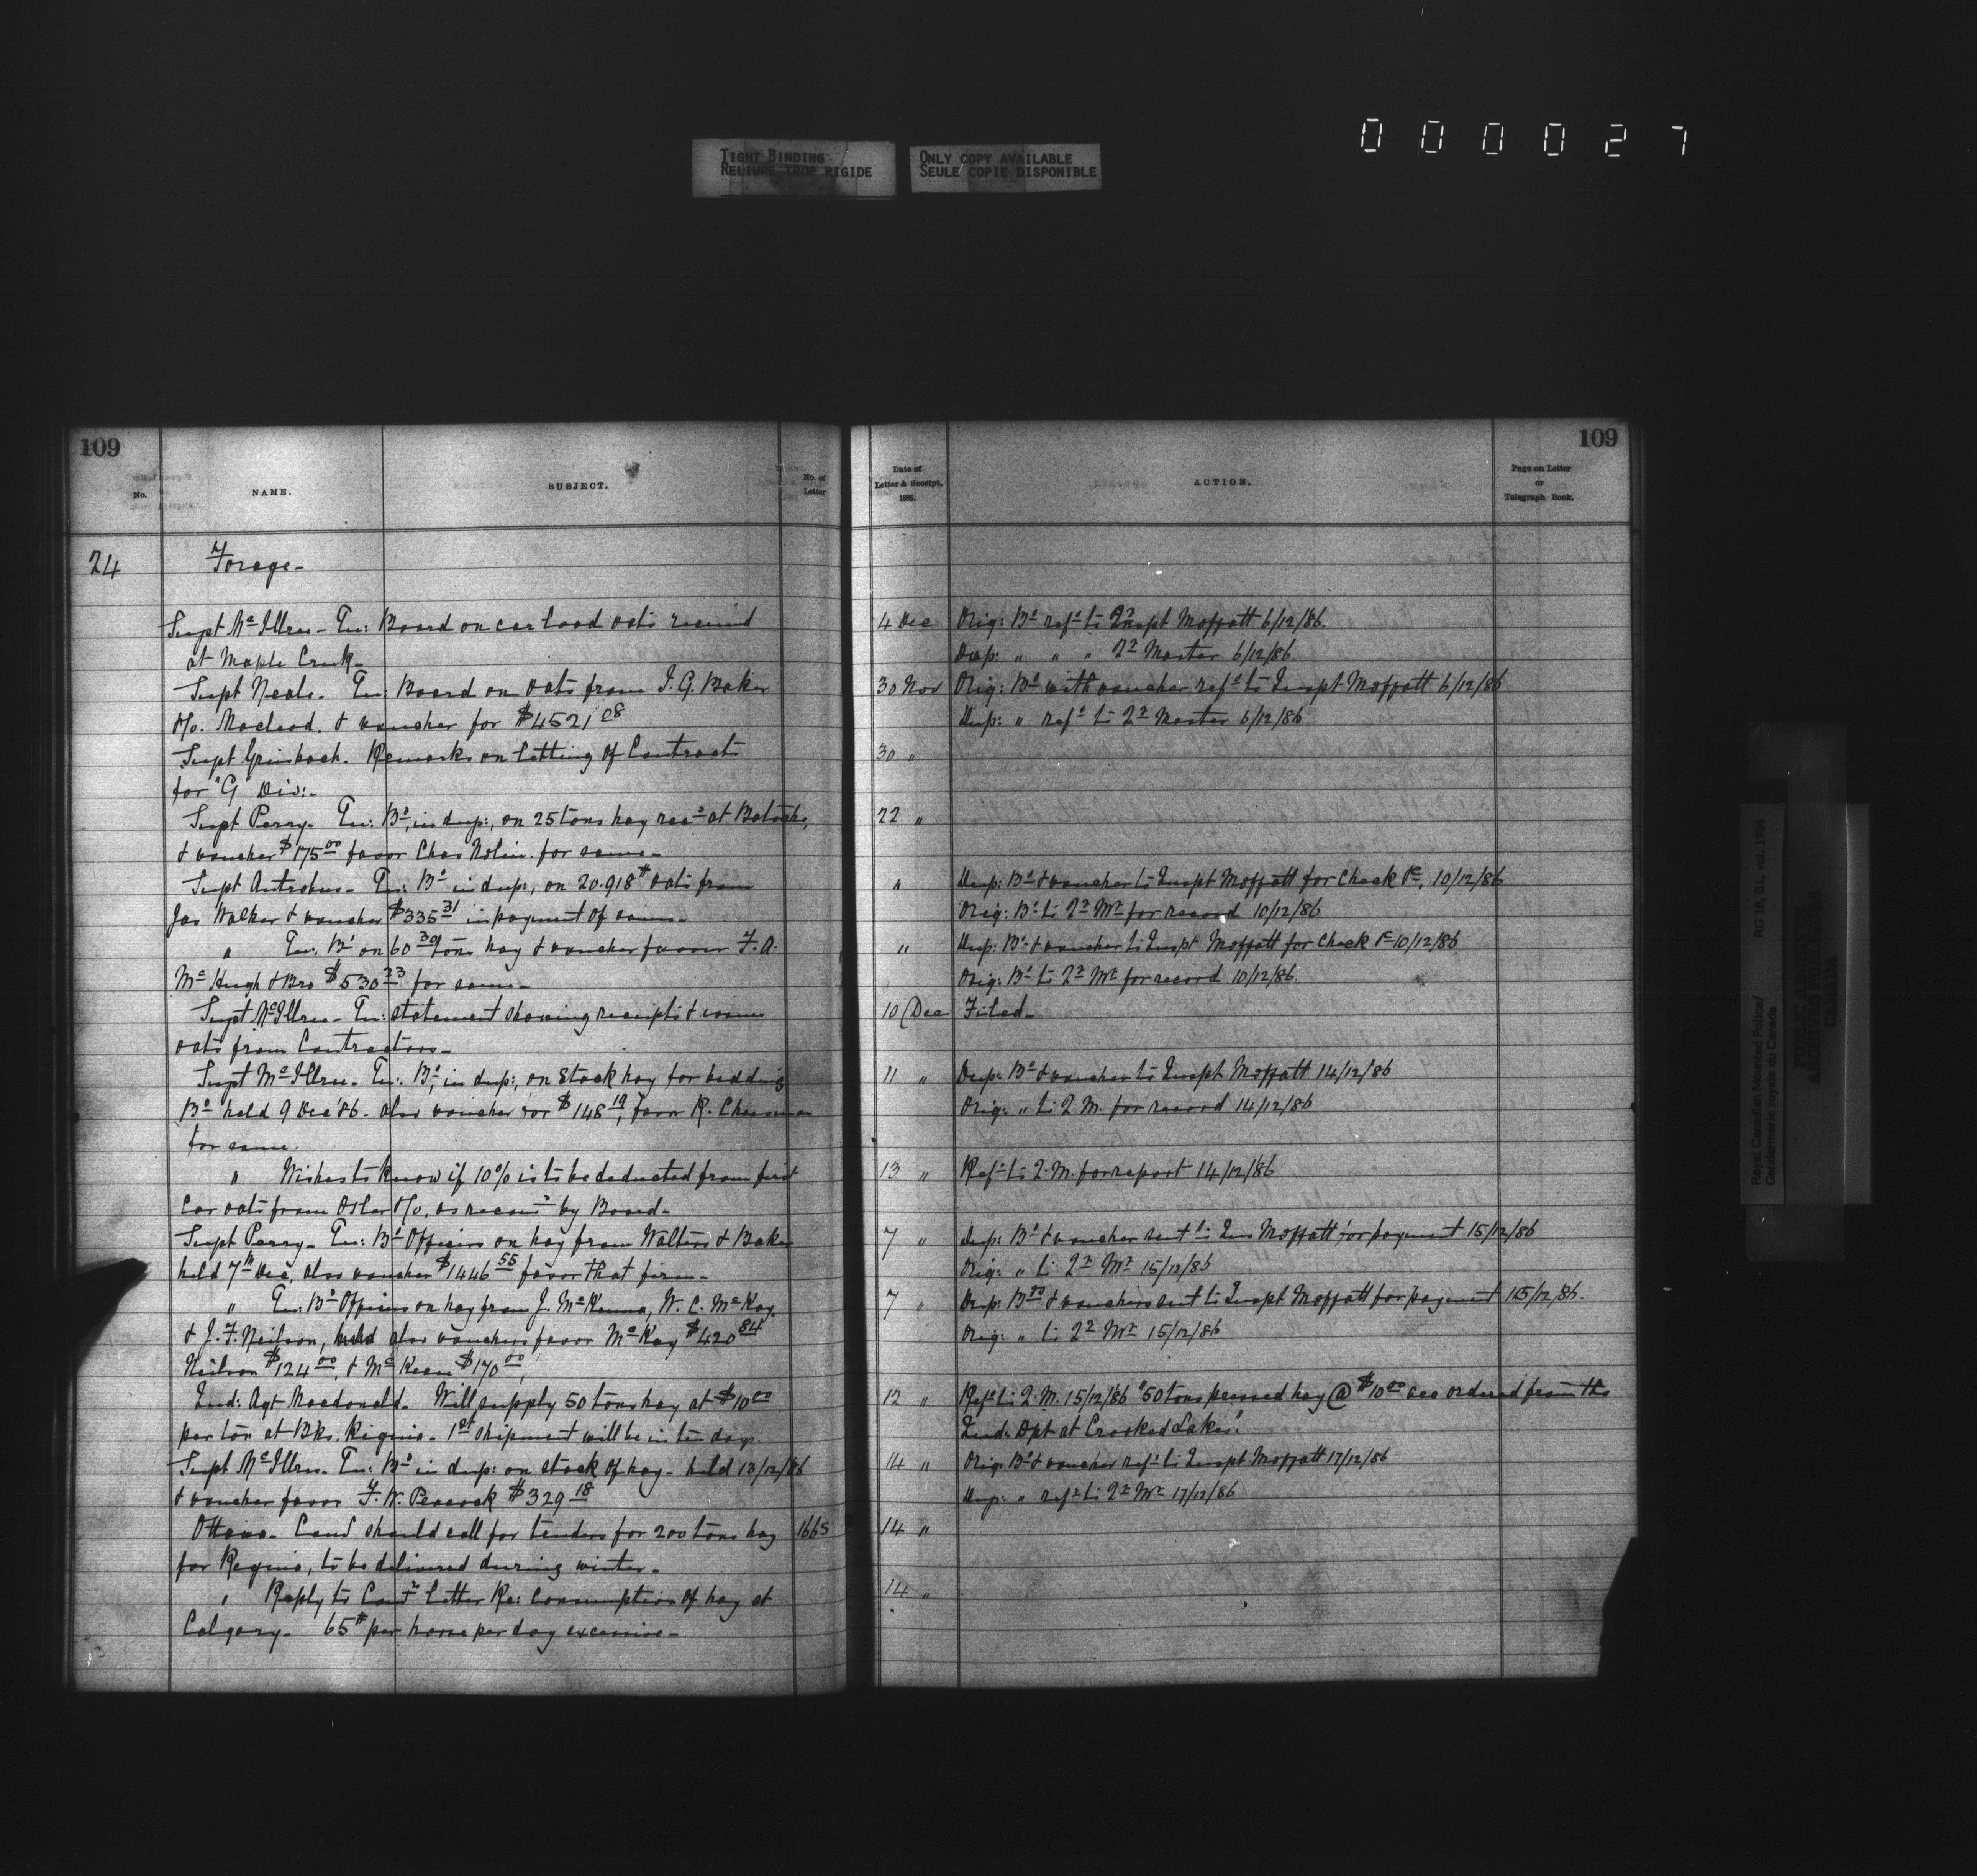 000027
TIGHT BINDING
RELIURE TROP RIGIDE
ONLY COPY AVAILABLE
SEULE COPIE DISPONIBLE
109
No.
NAME.
SUBJECT.
No. of
Letter
24 Forage-
Supt McIllree - En: Board on car load oats received
at Maple Creek-
Supt Neale. En: Board on oats from I. G. Baker
&/o. Macleod. & voucher for $4521 08
Supt Griesbach. Remarks on letting of Contracts
for "G" Div:-
Supt Perry- En: Bd, in dup:, on 25 tons hay recd at Batoche,
& voucher $175 00 favor Chas Nolin. for same-
Supt Antrobus- En: Bd in dup:, on 20.918# oats from
Jas Walker & voucher $335 31 in payment of same-
" En. Bd on 60 tons hay & voucher favour F. A.
McHugh & Bro $530 23 for same-
Supt McIllree- En: statement showing receipts & issues
oats from Contractors-
Supt McIllree- En: Bd, in dup:, on Stack hay for bedding
Bd held 9 Dec '86. also voucher for $148 19, favor R. Cheeseman
for same.
" Wishes to know if 10% is to be deducted from first
Car oats from Osler &/o, as recomd by Board-
Supt Perry- En: Bd Officers on hay from Walters & Baker
held 7th Dec, also voucher $1446 55 favor that firm-
" En: Bd Officers on hay from J. McKenna, W. C. McKay.
& J. F. Neilson, held also vouchers favor McKay $420 84
Neilson $124 00, & McKenna $170 00,
Ind: Agt Macdonald- Will supply 50 tons hay at $10 00
per ton at Bks. Regina- 1st shipment will be in ten days.
Supt McIllree- En: Bd in dup: on stack of hay- held 13/12/86
& voucher favor F. W. Peacock $329 18
Ottawa- Comr should call for tenders for 200 tons hay 1665
for Regina, to be delivered during winter-
" Reply to Comrs letter Re: Consumption of hay at
Calgary- 65# per horse per day excessive-
109
Date of
Letter & Receipt.
1885.
ACTION.
Page on Letter
or
Telegraph Book.
4 Dec Orig: Bd refd to Inspt Moffatt 6/12/86.
Dup: " " " Qr Master 6/12/86
30 Nov Orig: Bd with voucher refd to Inspt Moffatt 6/12/86
Dup: " refd to Qr Master 6/12/86
30 "
22 "
" Dup: Bd & voucher to Inspt Moffatt for Check &c, 10/12/86
Orig: Bd to Qr Mr for record 10/12/86
" Dup: Bd & voucher to Inspt Moffatt for Check &c 10/12/86
Orig: Bd to Qr Mr for record 10/12/86.
10 Dec Filed-
11 " Dup: Bd & voucher to Inspt Moffatt 14/12/86
Orig: " to Q M. for record 14/12/86
13 " Refd to Q. M. for report 14/12/86
7 " Dup: Bd & voucher sent to Ins Moffatt for payment 15/12/86
Orig: " to Qr Mr 15/12/86
7 " Dup: Bds & vouchers sent to Inspt Moffatt for payment 15/12/86.
Orig: " to Qr Mr 15/12/86
12 " Refd to Q. M. 15/12/86 "50 tons pressed hay @ $10 00 are ordered from the
Ind: Dpt at Crooked Lakes."
14 " Orig: Bd & voucher refd to Inspt Moffatt 17/12/86
Dup: " refd to Qr Mr 17/12/86
14 "
14 "
Royal Canadian Mounted Police/
Gendarmerie royale du Canada
RG 18, B1, vol. 1954
PUBLIC ARCHIVES
ARCHIVES PUBLIQUES
CANADA